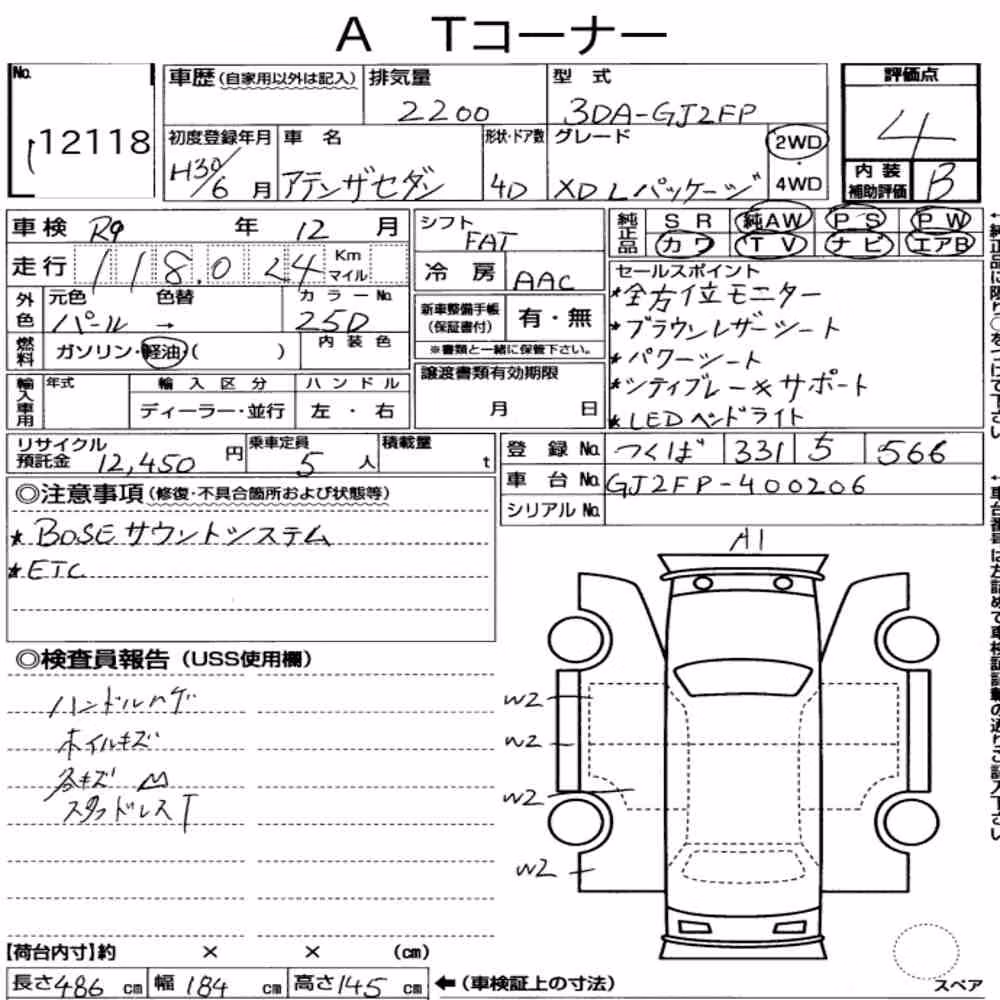 A Tコーナー
No.
12118
車歴(自家用以外は記入)
排気量
2200
型 式
3DA-GJ2FP
評価点
4
初度登録年月
H30/6月
車 名
アテンザセダン
形状・ドア数
4D
グレード
XD Lパッケージ
2WD
・
4WD
内 装
補助評価
B
車検 R9 年 12 月
走行 118,024 Km マイル
外色
元色 色替
パール →
カラーNo.
25D
燃料
ガソリン・軽油・( )
内 装 色
輸入車用
年式
輸 入 区 分
ディーラー・並行
ハ ン ド ル
左 ・ 右
シフト
FAT
冷 房 AAC
新車整備手帳
(保証書付)
有・無
※書類と一緒に保管下さい。
譲渡書類有効期限
月 日
純正品
SR 純AW PS PW
カワ TV ナビ エアB
セールスポイント
*全方位モニター
*ブラウンレザーシート
*パワーシート
*シティブレーキサポート
*LEDヘッドライト
リサイクル
預託金 12,450 円
乗車定員
5 人
積載量
t
登 録 No. つくば 331 5 566
車 台 No. GJ2FP-400206
シリアルNo.
◎注意事項(修復・不具合箇所および状態等)
*BOSEサウンドシステム
*ETC
◎検査員報告(USS使用欄)
ハンドルハゲ
ホイルキズ
各キズ
スタッドレスT
A1
W2
W2
W2
W2
スペア
【荷台内寸】約 × × (cm)
長さ486cm 幅184cm 高さ145cm ←(車検証上の寸法)